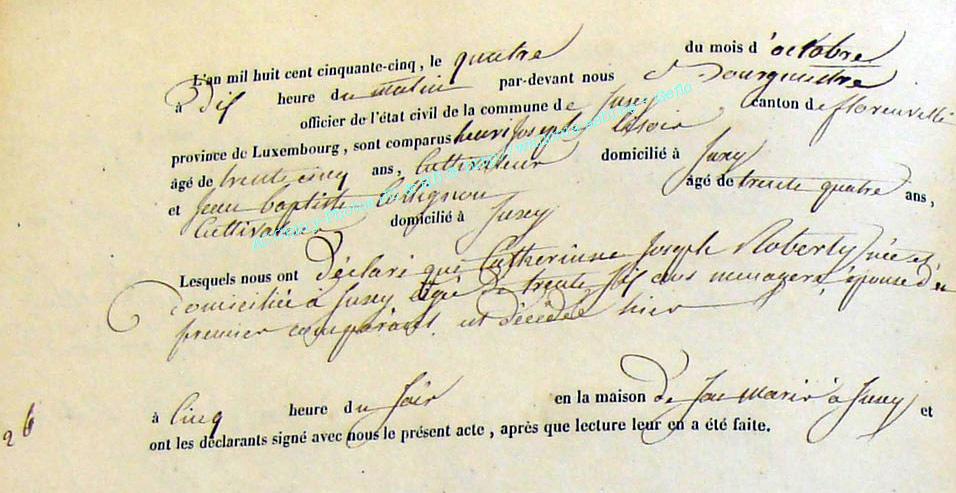 L'an mil huit cent cinquante-cinq, le quatre du mois d'octobre
à Dix heure du matin par-devant nous
officier de l'état civil de la commune de Jusey canton de florenville
province de Luxembourg, sont comparus henri Joseph
âgé de trente cinq ans, Cultivateur domicilié à Jusey
et Jean baptiste Collignon âgé de trente quatre ans,
Cultivateur domicilié à Jusey
Lesquels nous ont Déclaré que Catherinne Joseph Roberty née et
Domiciliée à Jusey âgée de trente Six ans menagere, épouse du
premier comparant est Décédée hier
26
à Cinq heure du Soir en la maison de Son Marie à Jusey et
ont les déclarants signé avec nous le présent acte, après que lecture leur en a été faite.